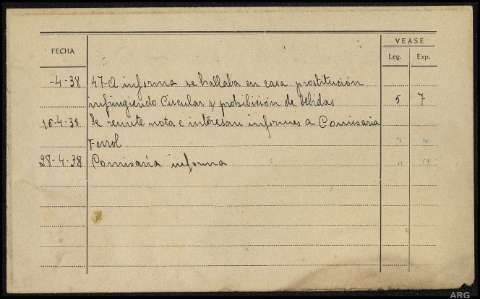 VEASE
FECHA Leg. Exp.
-4-38 47-A informa se hallaba en casa prostitución
infringiendo Circular y prohibición de bebidas 5 7
16-4-38 Se remite nota e interesan informes a Comisaria
Ferrol " "
28-4-38 Comisaría informa " "
ARG